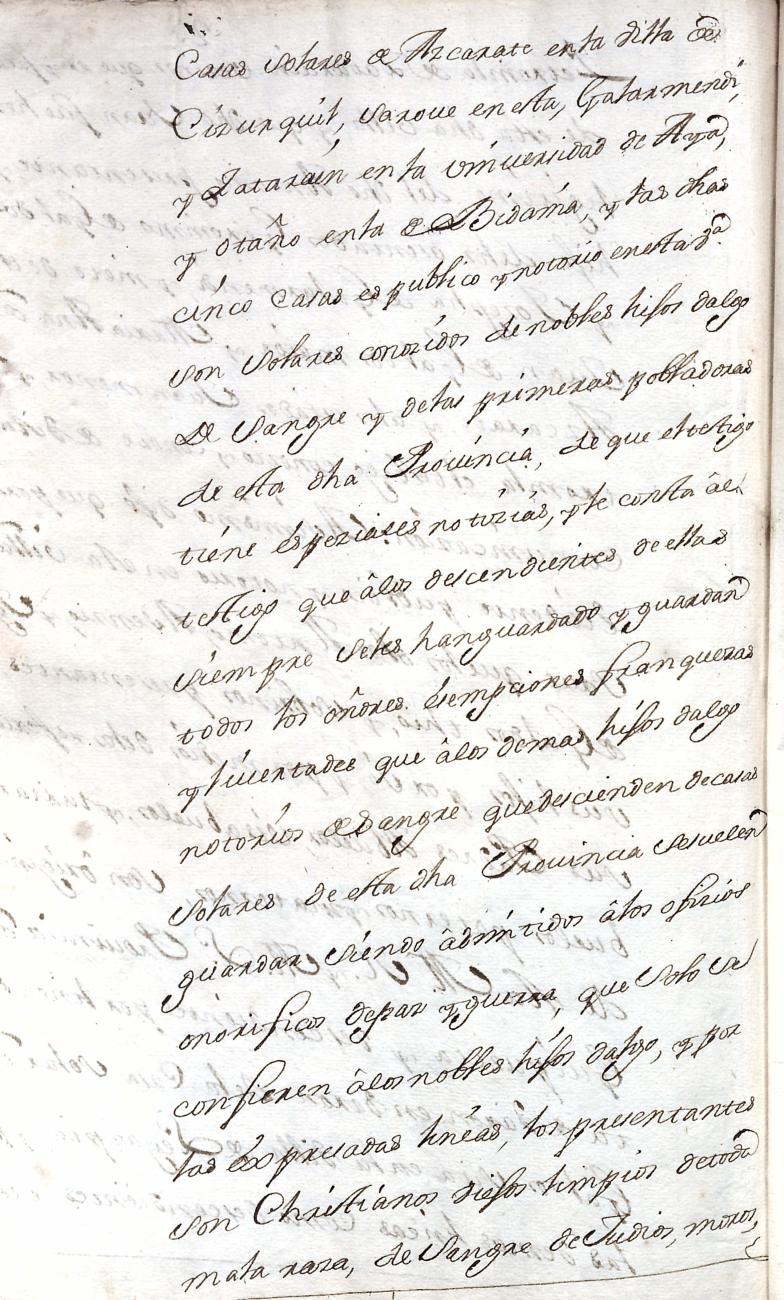 Casas solares de Azcarate en la Villa de
Cizurquil, Sarove en esta, Galarmendi,
y Latarain en la Universidad de Aya,
y otaño en la de Bidania, y las dhas
cinco Casas es publico y notorio en esta Va
son Solares conozidos de nobles hijos dalgo
de Sangre y delas primeras pobladoras
de esta dha Provincia, de que el testigo
tiene espeziales notizias, y le consta âel
testigo que âlos descendientes de ellas
siempre seles hanguardado y guardan
todos los oñores esempciones franquezas
y livertades que âlos demas hijos dalgo
notorios de Sangre quedescienden decasas
Solares de esta dha Provincia sesuelen
guardar siendo âdmitidos âlos ofizios
onorificos depaz y guerra, que Solo se
confieren âlos nobles hijos dalgo, y por
las expresadas lineas, los presentantes
son Christianos viejos limpios detoda
mala raza, de Sangre de Judios, moros,